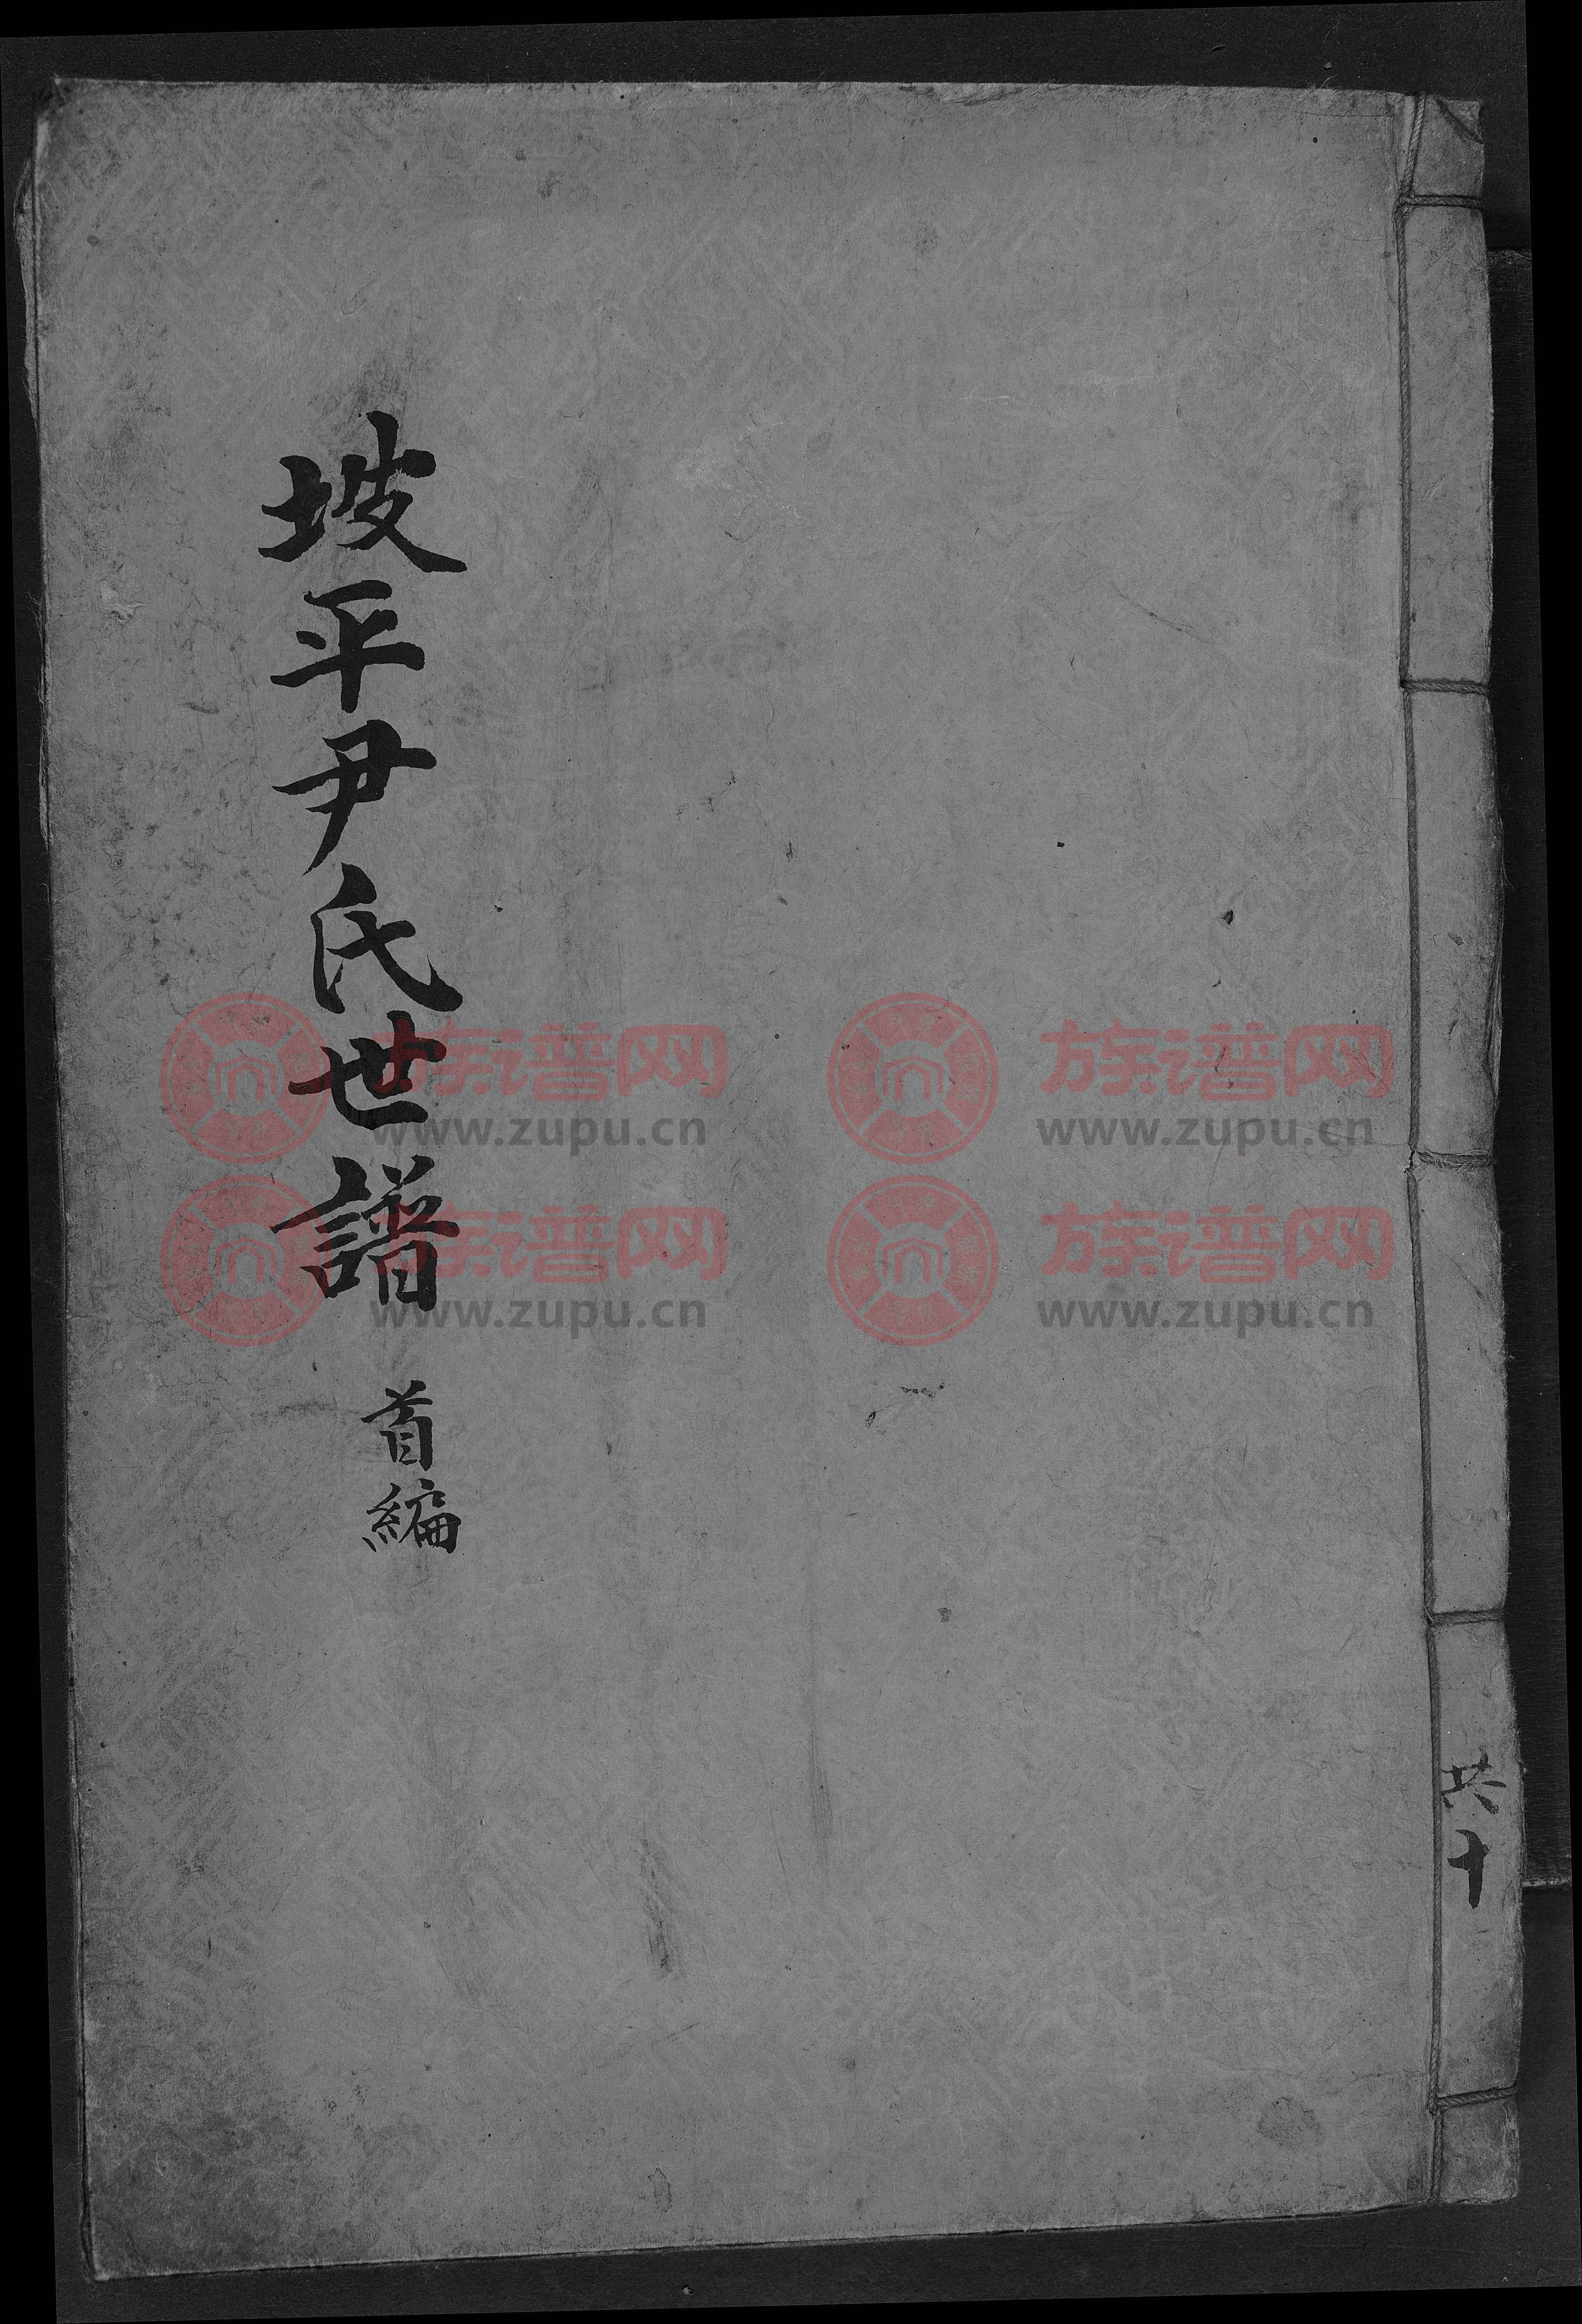 坡平尹氏世譜
首編
共十
族谱网
www.zupu.cn
族谱网
www.zupu.cn
族谱网
www.zupu.cn
族谱网
www.zupu.cn